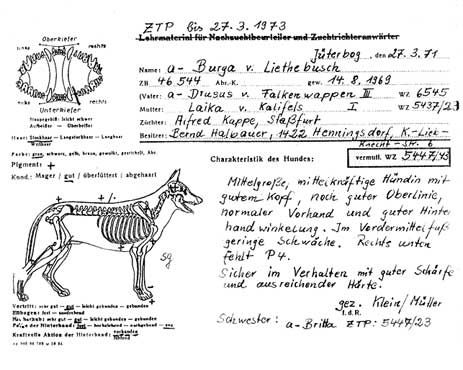 ZTP bis 27.3.1973
Lehrmaterial für Nachzuchtbeurteiler und Zuchtrichteranwärter
Jüterbog, den 27.3.71
Name: a- Burga v. Liethebusch
ZB 46 544 Abr.-K. gew. 14.8.1969
(Vater: a- Drusus v. Falkenwappen III WZ 6545
Mutter: Laika v. Kalifels I WZ 5437/23
Züchter: Alfred Kappe, Staßfurt
Besitzer: Bernd Halbauer, 1422 Henningsdorf, K.-Lieb-
Knecht-Str. 6
vermutl. WZ 5447/43
Oberkiefer
links rechts
links rechts
Unterkiefer
Zangengebiß: leicht schwer
Aufbeißer - Überbeißer
Haar: Stockhaar - Langstockhaar - Langhaar
Wellhaar
Farbe: grau, schwarz, gelb, braun, gewolkt, gestichelt, Abz.
Pigment: +
Kond.: Mager / gut / überfüttert / abgehaart
Charakteristik des Hundes:
Mittelgroße, mittelkräftige Hündin mit
gutem Kopf, noch guter Oberlinie,
normaler Vorhand und guter Hinter
handwinkelung. Im Vordermittelfuß
geringe Schwäche. Rechts unten
fehlt P4.
Sicher im Verhalten mit guter Schärfe
und ausreichender Härte.
gez. Klein/Müller
f.d.R.
Schwester: a-Britta ZTP: 5447/23
sg
Vortritt: sehr gut - gut - leicht gebunden - gebunden
Ellbogen: fest - leicht gebunden - gebunden
Nachschub: sehr gut - gut - leicht gebunden - gebunden
der Hinterhand: fest - hackelnd - nachgebend - eng
Kraftvolle Aktion der Hinterhand: vorhanden
fehlend